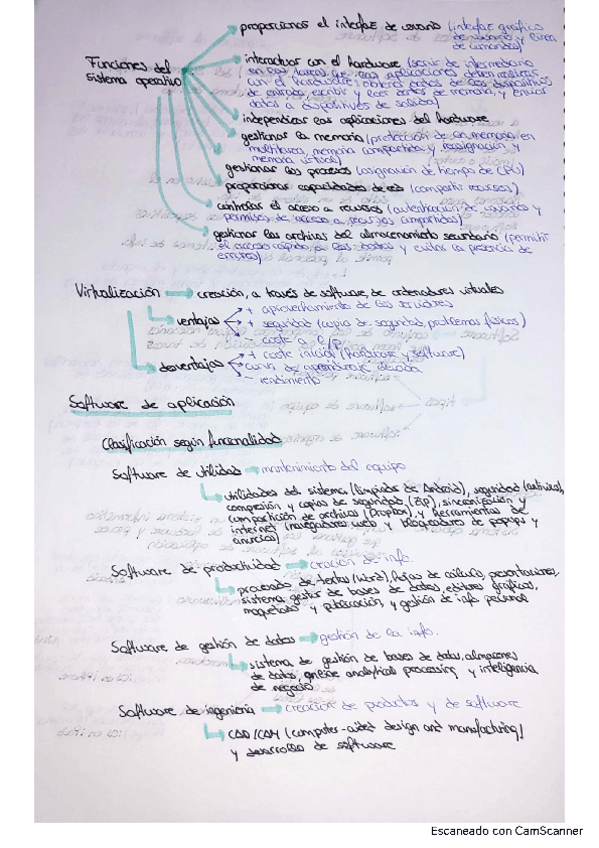 proporcionar el interfaz de usuario (interfaz gráfica
de usuario y línea
de comandos)
Funciones del
sistema operativo
interactuar con el hardware (servir de intermediario
en las tareas que las aplicaciones deben realizar
con el hardware: obtener datos de los dispositivos
de entrada, escribir y leer datos de memoria, y enviar
datos a dispositivos de salida)
independizar las aplicaciones del hardware
gestionar la memoria (protección de la memoria en
multitarea, memoria compartida y reasignación y
memoria virtual)
gestionar los procesos (asignación de tiempo de CPU)
proporcionar capacidades de red (compartir recursos)
controlar el acceso a recursos (autentificación de usuarios y
permisos de acceso a recursos compartidos)
gestionar los archivos del almacenamiento secundario (permitir
el acceso rápido a los datos y evitar la presencia de
errores)
Virtualización → creación, a través de software, de ordenadores virtuales
ventajas
+ aprovechamiento de los servidores
+ seguridad (copia de seguridad, problemas físicos)
- coste a l/p
desventajas
+ coste inicial (hardware y software)
curva de aprendizaje elevada
- rendimiento
Software de aplicación
Clasificación según funcionalidad
Software de utilidad → mantenimiento del equipo
utilidades del sistema (limpiador de Android), seguridad (antivirus),
compresión y copias de seguridad (Zip), sincronización y
compartición de archivos (Dropbox), y herramientas de
internet (navegadores web y bloqueadores de popups y
anuncios)
Software de productividad → creación de info.
procesado de textos (Word), hojas de cálculo, presentaciones,
sistema gestor de bases de datos, editores gráficos,
maquetado y publicación, y gestión de info personal
Software de gestión de datos → gestión de la info.
sistema de gestión de bases de datos, almacenes
de datos, online analytical processing y inteligencia
de negocio
Software de ingeniería → creación de productos y de software
CAD/CAM (computer-aided design and manufacturing)
y desarrollo de software
Escaneado con CamScanner